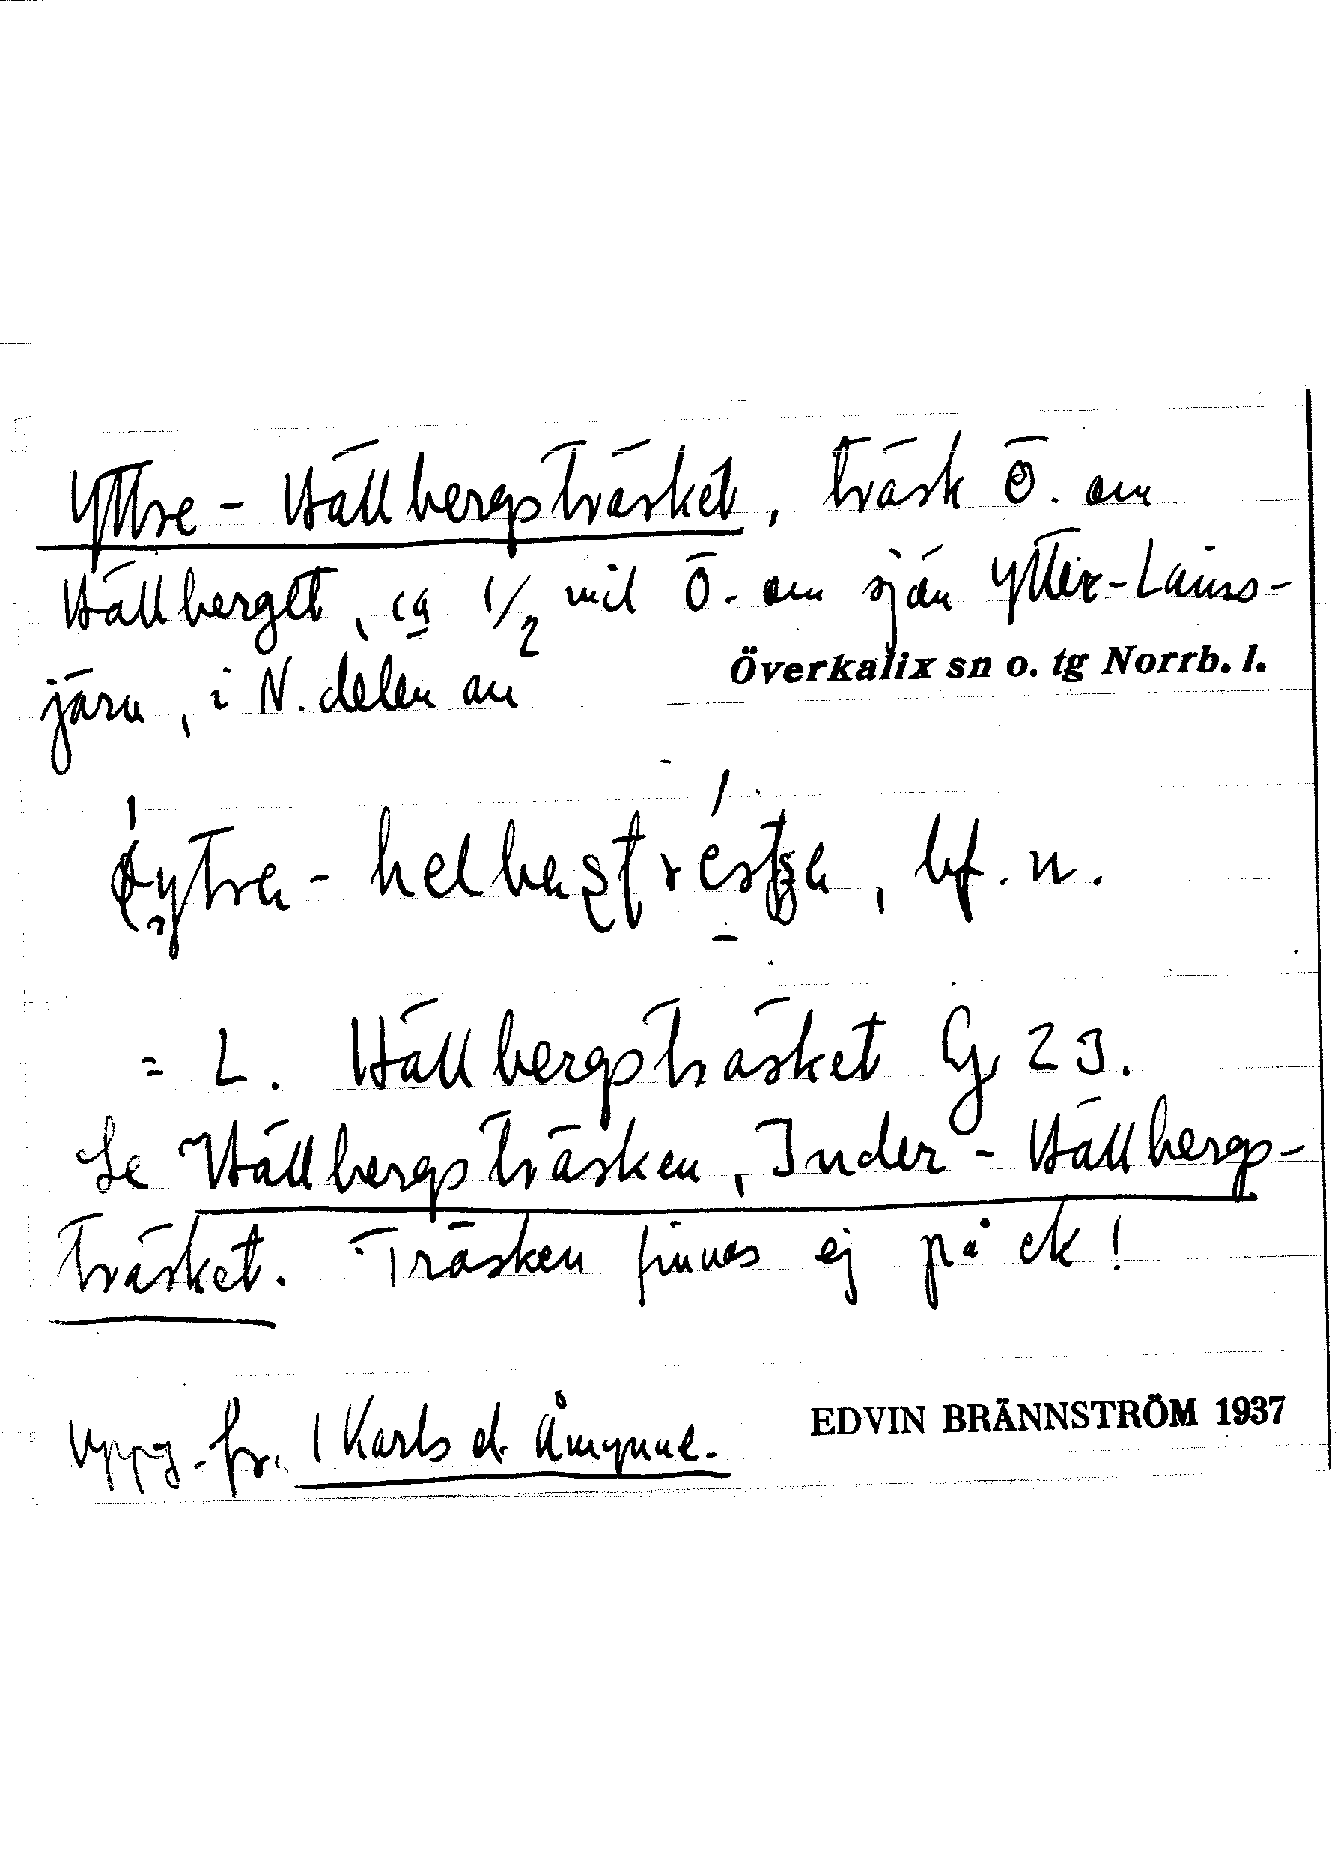 Yttre-Hällbergsträsket, träsk Ö. om
Hällberget, ca 1/2 mil Ö. om sjön Ytter-Lans-
järv, i N. delen av
Överkalix sn o. tg Norrb. l.
bf. n.
= L. Hällbergsträsket G 23.
Se Hällbergsträsken, Inder-Hällbergs-
träsket. Träsken finnas ej på ek!
Uppg. fr. Karls d. Åmynne.
EDVIN BRÄNNSTRÖM 1937